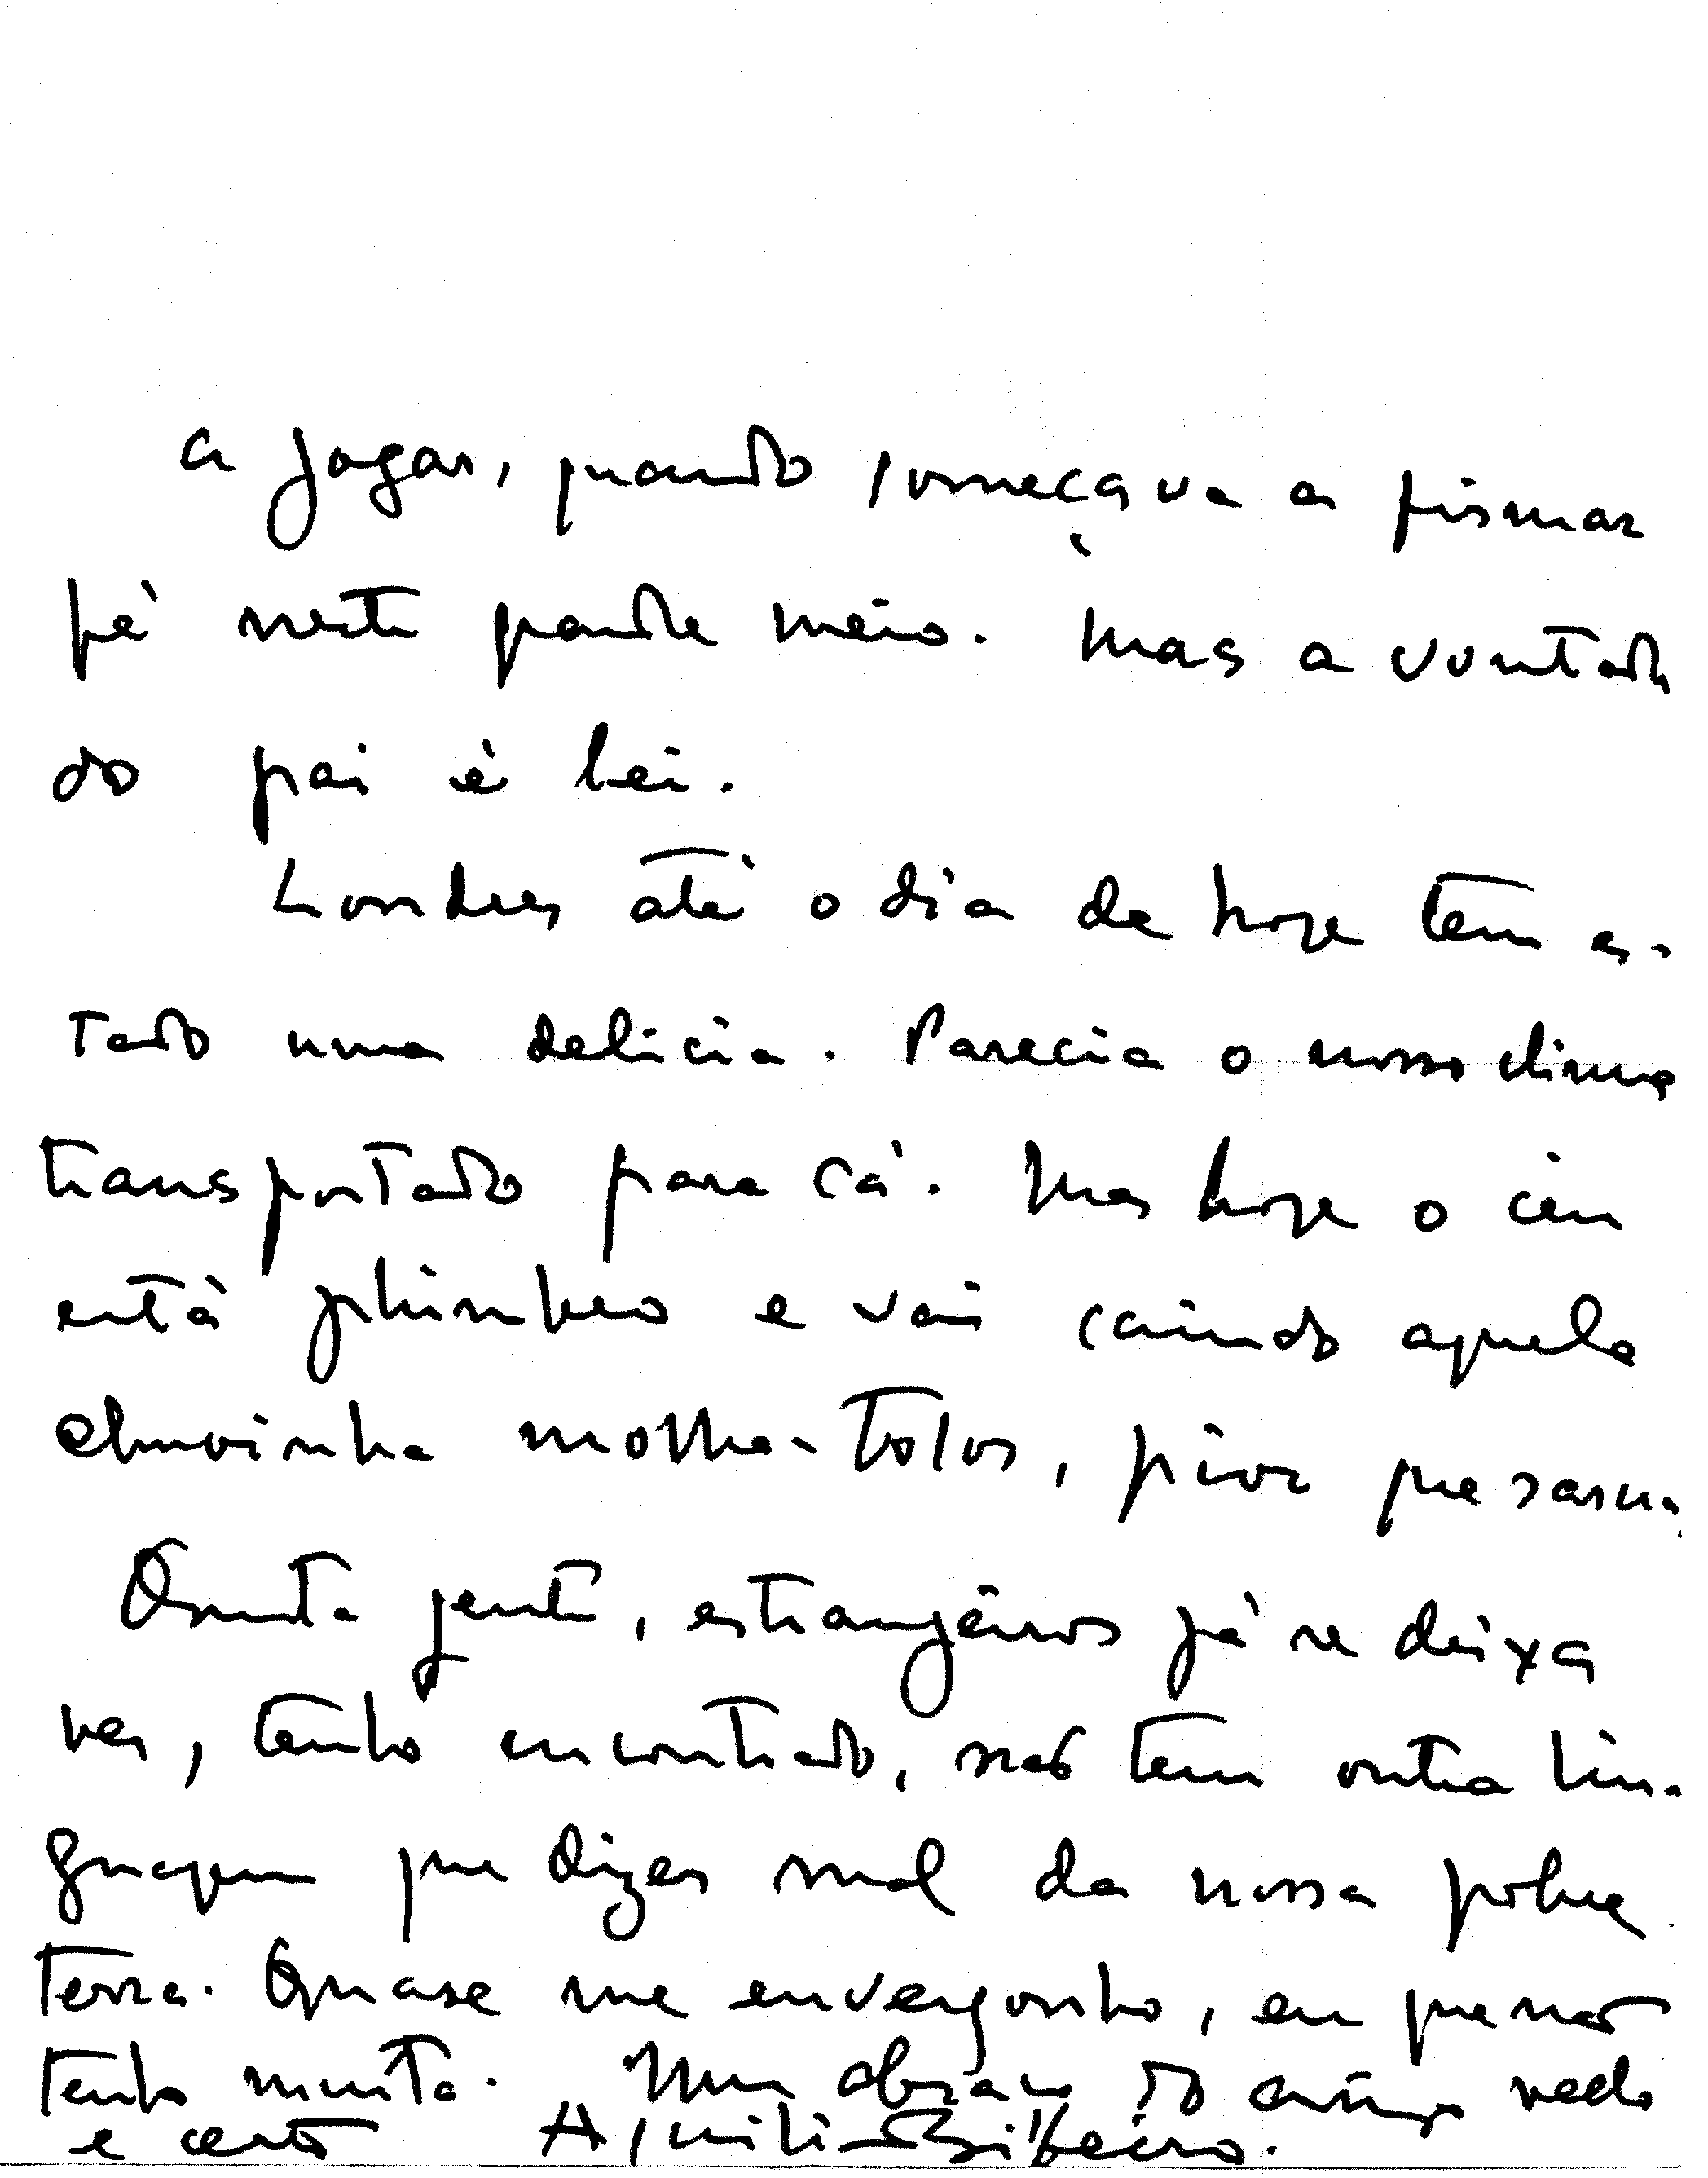 a jogar, quando começava a firmar
pé neste grande meio. Mas a vontade
do pai é lei.
Londres até o dia de hoje tem es-
tado uma delicia. Parecia o nosso clima
transportado para cá. Mas hoje o céu
está plúmbeo e vai caindo aquela
chuvinha molha-tolos, pior que
Quanta gente, estrangeiros já se deixa
ver, tenho encontrado, não tem outra lin-
guagem que dizer mal da nossa pobre
terra. Quase me envergonho, eu que não
tenho muita. Um abraço do amigo velho
e certo Aquilino Ribeiro.